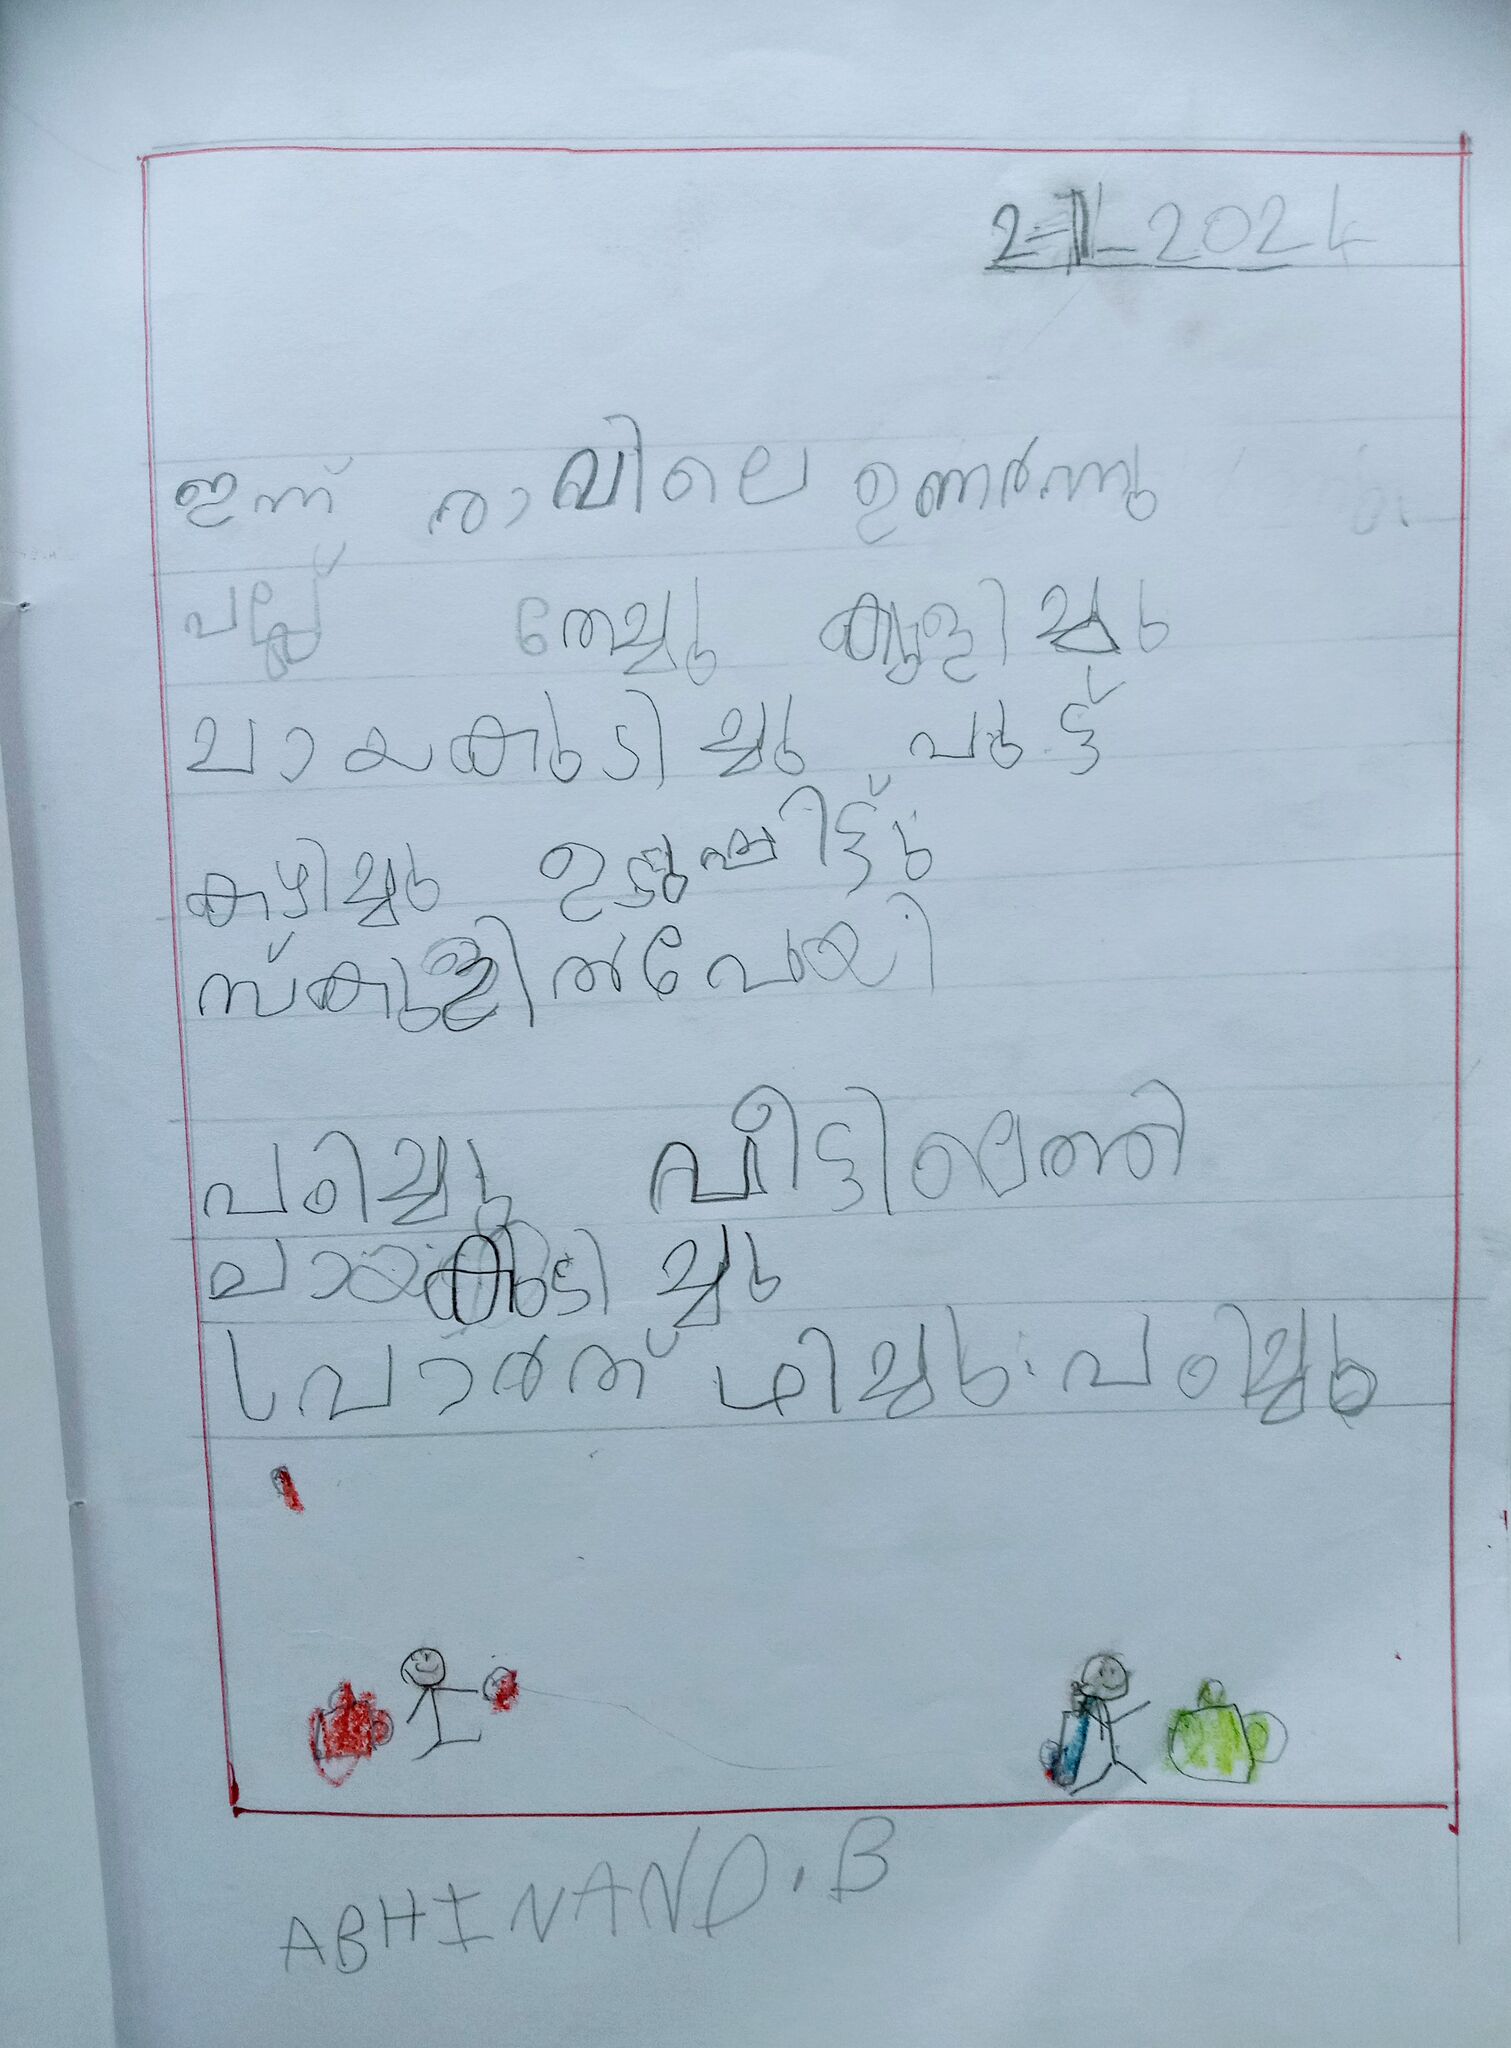 2-1-2024
ഇന്ന് രാവിലെ ഉണർന്നു
പല്ല് തേച്ചു കുളിച്ചു
ചായകുടിച്ചു പുട്ട്
കഴിച്ചു ഉടുപ്പിട്ടു
സ്കൂളിൽപോയി
പഠിച്ചു വീട്ടിലെത്തി
ചായകുടിച്ചു
പ്രാർത്ഥിച്ചു. പഠിച്ചു
ABHINAND.B